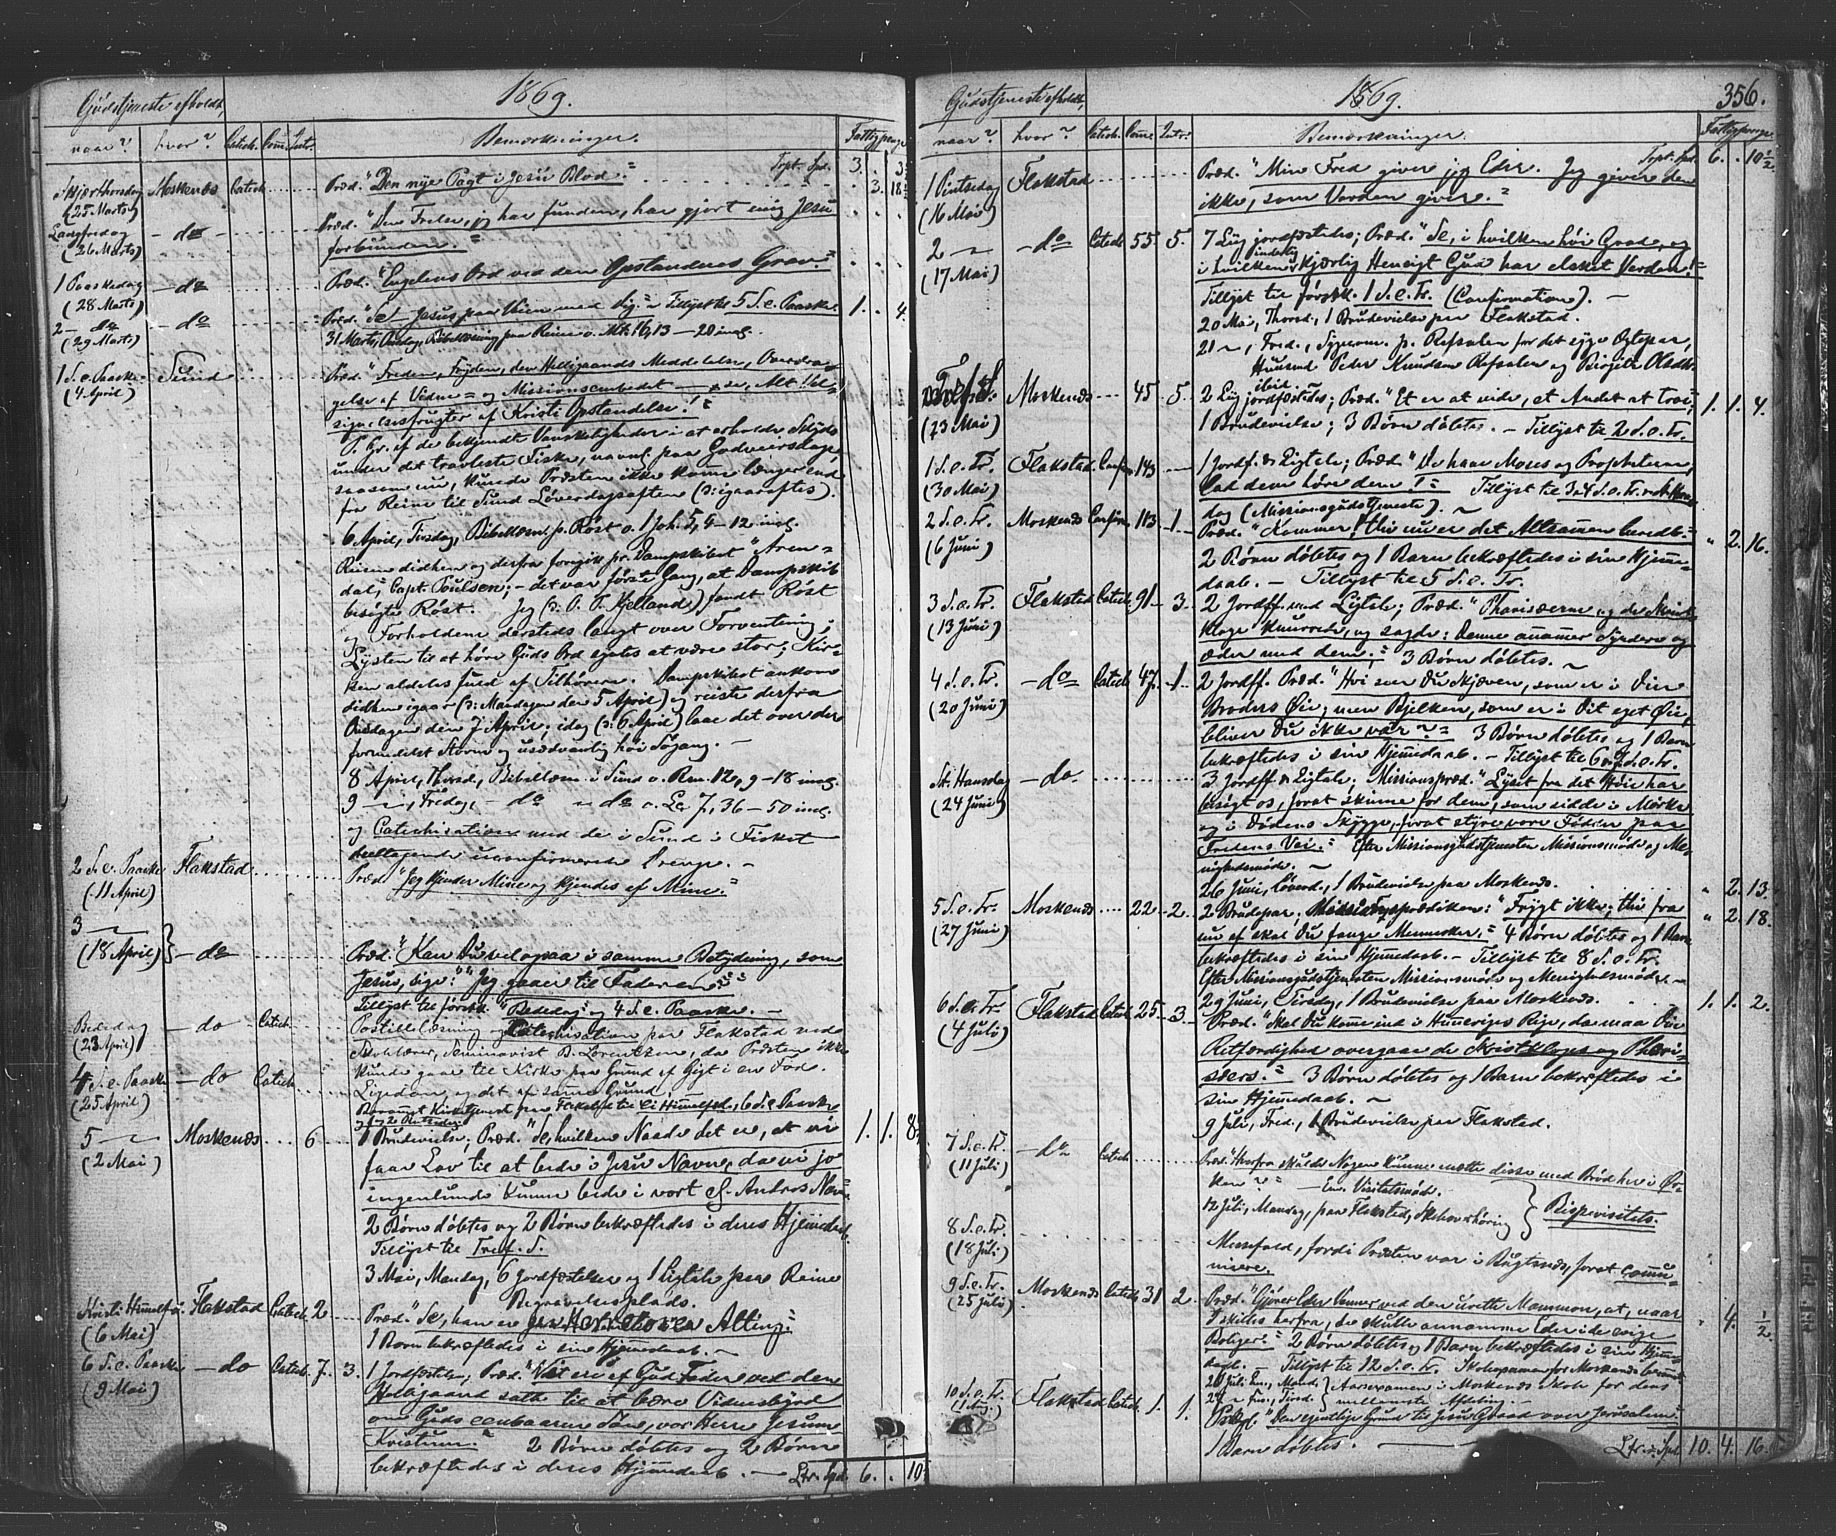 Gudstjeneste afholdt,
1869.
naar? hvor? Catech. Com. Intr. Bemærkninger. Fattigpenge
Skjærthorsdag Moskenæs Catech. Præd. "Den nye Pagt i Jesu Blod." Tspt. Spd. 3. . 3
(25 Marts) 3. 18
Langfredag - do - Præd. "Den Frelse, jeg har funden, har gjort mig Jesu
(26 Marts) forbunden."
1 Paaskedag - do Præd. "Engelens Ord ved den Opstandnes Grav."
(28 Marts)
2 - do - do Præd. "Se Jesus paa Veien med dig" - Tillyst til 5 S. e. Paaske. 1. . 4.
(29 Marts) 31 Marts, Onsdag, Bibellæsning paa Reine o. Mk. 16, 13-20 incl.
1 S. e. Paaske Sund Præd. "Freden, Fryden, den Helligaands Meddelelse, Overdra-
(4 April) gelse af Vidne- og Missionsembedet - se der, Alt Vel-
signelsesfrugter af Kristi Opstandelse!"
P. Gr. af de bekjendte Vanskeligheder i at erholde Skyds
under det travleste Fiske, navnl. paa Godveirsdage
saasom nu, kunde Præsten ikke komme længer end
fra Reine til Sund Løverdagsaften (ɔ: igaaraftes).
6 April, Tirsdag, Bibellæsn. p. Røst o. 1 Joh. 5, 4-12 incl.
Reisen didhen og derfra foregik pr. Dampskibet "Aren-
dal," Capt. Poulsen; - det var første Gang, at Dampskib
besøgte Røst. Jeg (ɔ: O. T. Kjelland) fandt Røst
og Forholdene dersteds langt over Forventning;
Lysten til at høre Guds Ord syntes at være stor; Kir-
ken aldeles fuld af Tilhørere. Dampskibet ankom
didhen igaar (ɔ: Mandagen den 5 April) og reiste derfra
Onsdagen den 7 April; idag (ɔ: 6 April) laae det over der
formedelst Storm og usædvanlig høi Søgang. -
8 April, Thorsd., Bibellæsn. i Sund o. Rm. 12, 9-18 incl.
9 - , Fredag, - do - do o. Lc. 7, 36-50 incl.
og Catechisation med de i Sund i Fisket
deeltagende uconfirmerede Drenge. -
2 S. e. Paaske Flakstad Præd. "Jeg kjender Mine og kjendes af Mine."
(11 April)
3 -
(18 April) - do Præd. "Kan Du vel ogsaa i samme Betydning, som
Jesus, sige: "Jeg gaaer til Faderen?"
Tillyst til førstk. "Bededag" og 4 S. e. Paaske. -
Bededag - do Catech. Postillelæsning og Catechisation paa Flakstad ved
(23 April) Skolelærer, Seminarist B. Lorentzen, da Præsten ikke
4 S. e. Paaske - do Catech. kunde gaae til Kirke paa Grund af Gigt i en Fod.
(25 April) Ligedan og det af samme Grund. -
Berammet Kirketjeneste paa Flakstad til Kristi Himmelfd., 6 S. e. Paaske
og 1 og 2 Pintsedag.
5 - Moskenæs 6 1 Brudevielse; Præd. "Se, hvilken Naade det er, at vi 1. 1. 8
(2 Mai) faae Lov til at bede i Jesu Navn, da vi jo
ingenlunde kunne bede i vort el. Andres Navn."
2 Børn døbtes og 2 Børn bekræftedes i deres Hjemmedaab.
Tillyst til Tref. S.
3 Mai, Mandag, 6 Jordfæstelser og 1 Ligtale paa Reine
Begravelsesplads.
Kristi Himmelfd. Flakstad Catech. 2 Præd. "Se, han er Herre over Alting."
(6 Mai) 1 Barn bekræftedes i sin Hjemmedaab. -
6 S. e. Paaske - do Catech. 7. 3. 1 Jordfæstelse; Præd. "Vist er af Gud Fader ved den
(9 Mai) Helligaand satte til at bære Vidnesbyrd
om Guds eenbaarne Søn, vor Herre Jesum
Kristum." 2 Børn døbtes og 2 Børn
bekræftedes i deres Hjemmedaab. - Ltr. Spd. 6. . 10
Gudstjeneste afholdt,
1869. 356.
naar? hvor? Catech. Com. Intr. Bemærkninger. Fattigpenge
1 Pintsedag Flakstad Præd. "Min Fred giver jeg Eder. Jeg giver den Tspt. Spd. 6. . 10½
(16 Mai) ikke, som Verden giver."
2 - - do Catech. 55. 5. 7 Lig jordfæstedes; Præd. "Se, i hvilken høi Grad, og
(17 Mai) i hvilken inderlig kjærlig Hensigt Gud har elsket Verden!"
Tillyst til førstk. 1 S. e. Tr. (Confirmation). -
20 Mai, Thorsd., 1 Brudevielse paa Flakstad.
21 - , Fred., Sygecom. p. Refsalen for det syge Ægtepar,
Huusmd Peder Knudsen Refsalen og
Tref. S. Moskenæs 45 5. 2 Lig jordfæstedes; Præd. "Et er at vide, et Andet at troe;" 1. 1. 4.
(23 Mai) 1 Brudevielse; 3 Børn døbtes. - Tillyst til 2 S. e. Tr.
1 S. e. Tr. Flakstad Confirm. 143 - 1 Jordf. & Ligtale; Præd. "De have Moses og Propheterne,
(30 Mai) lad dem høre dem!" Tillyst til 3 & 4 S. e. Tr. og St. Hans-
dag (Missionsgudstjeneste). -
2 S. e. Tr. Moskenæs Confirm. 113 - 1 - Præd. "Kommer! thi nu er det Altsammen beredt." " 2. 16.
(6 Juni) 2 Børn døbtes og 1 Barn bekræftedes i sin Hjemme-
daab. - Tillyst til 5 S. e. Tr.
3 S. e. Tr. Flakstad Catech. 91 - 3. 2 Jordff. med Ligtale; Præd. "Pharisæerne og de Skrift-
(13 Juni) kloge knurrede, og sagde: Denne annammer Syndere og
æder med dem." 3 Børn døbtes. -
4 S. e. Tr. - do Catech. 47. - 1 - 2 Jordff. Præd. "Hvi seer Du Skjæven, som er i Din
(20 Juni) Broders Øie; men Bjelken, som er i Dit eget Øie,
bliver Du ikke var" - 3 Børn døbtes og 1 Barn
bekræftedes i sin Hjemmedaab. - Tillyst til 6 S. e. Tr.
St. Hansdag - do 3 Jordff. & Ligtale; Missionspræd. "Lyset fra det Høie har
(24 Juni) besøgt os, forat skinne for dem, som sidde i Mørke
og i Dødens Skygge, forat styre vore Fødder paa
Fredens Vei." Efter Missionsgudstjenesten Missionsmøde og Me-
nighedsmøde. -
26 Juni, Løverd., 1 Brudevielse paa Moskenæs. " 2. 13.
5 S. e. Tr. Moskenæs 22 - 2. 2 Brudepar; Missionsprædiken: "Frygt ikke; thi fra " 2. 18.
(27 Juni) nu af skal Du fange Mennesker." 4 Børn døbtes og 1 Barn
bekræftedes i sin Hjemmedaab. - Tillyst til 8 S. e. Tr.
Efter Missionsgudstjenesten Missionsmøde og Menighedsmøde. -
29 Juni, Tirsdag, 1 Brudevielse paa Moskenæs. 1. 1. 2.
6 S. e. Tr. Flakstad Catech. 25. - 3. Præd. "Skal Du komme ind i Himmeriges Rige, da maa Din
(4 Juli) Retfærdighed overgaae de Skriftkloges og Phari-
sæers." 3 Børn døbtes og 1 Barn bekræftedes i
sin Hjemmedaab. -
9 Juli, Fred., 1 Brudevielse paa Flakstad.
7 S. e. Tr. - do Catech. Præd. "Hvorfra skulde Nogen kunne mætte disse med Brød her i Ør-
(11 Juli) ken?" - En. Visitatsmøde.
12 Juli, Mandag, paa Flakstad, Skoleoverhøring } Bispevisitats.
8 S. e. Tr.
(18 Juli) Messefald, fordi Præsten var i Buksnæs, forat commu-
nicere.
9 S. e. Tr. Moskenæs Catech. 31 2. Præd. "Gjører Eder Venner ved den urette Mammon, at, naar " 4. ½
(25 Juli) I skilles herfra, de skulle annamme Eder i de evige
Boliger." 2 Børn døbtes, 1 Barn bekræftedes i sin Hjemme-
daab. - Tillyst til 12 S. e. Tr. Skoleexamen for Moskenæs
26 Juli, Mand. } Aarsexamen i Moskenæs Skole for dens
27 - , Tirsd. } Afdeling. -
10 S. e. Tr. Flakstad Catech. 1. 1. Præd. "Den egentlige Grund til Jesu Graad over Jerusalem."
(1 Aug.) 1 Barn døbtes. - Ltr. Spd. 10. 4. 16.